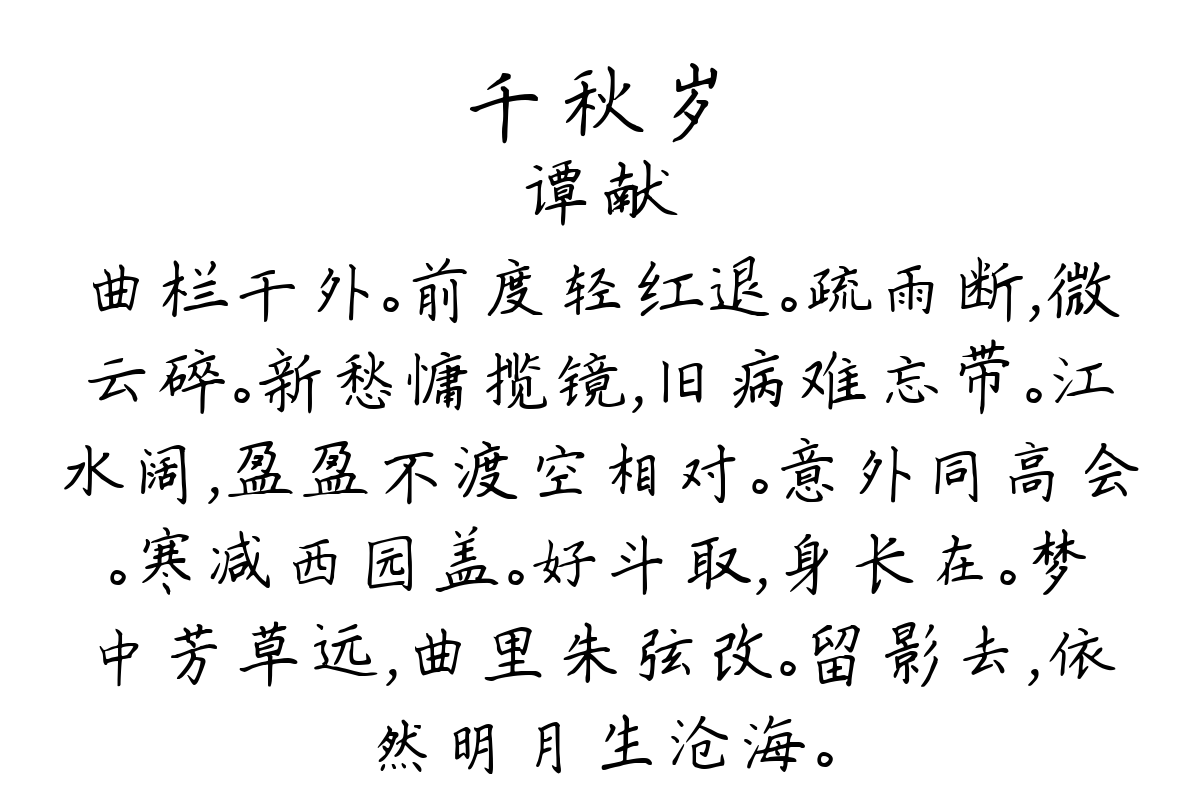 千秋岁
谭献
曲栏干外。前度轻红退。疏雨断,微
云碎。新愁慵揽镜,旧病难忘带。江
水阔,盈盈不渡空相对。意外同高会
。寒减西园盖。好斗取,身长在。梦
中芳草远,曲里朱弦改。留影去,依
然明月生沧海。